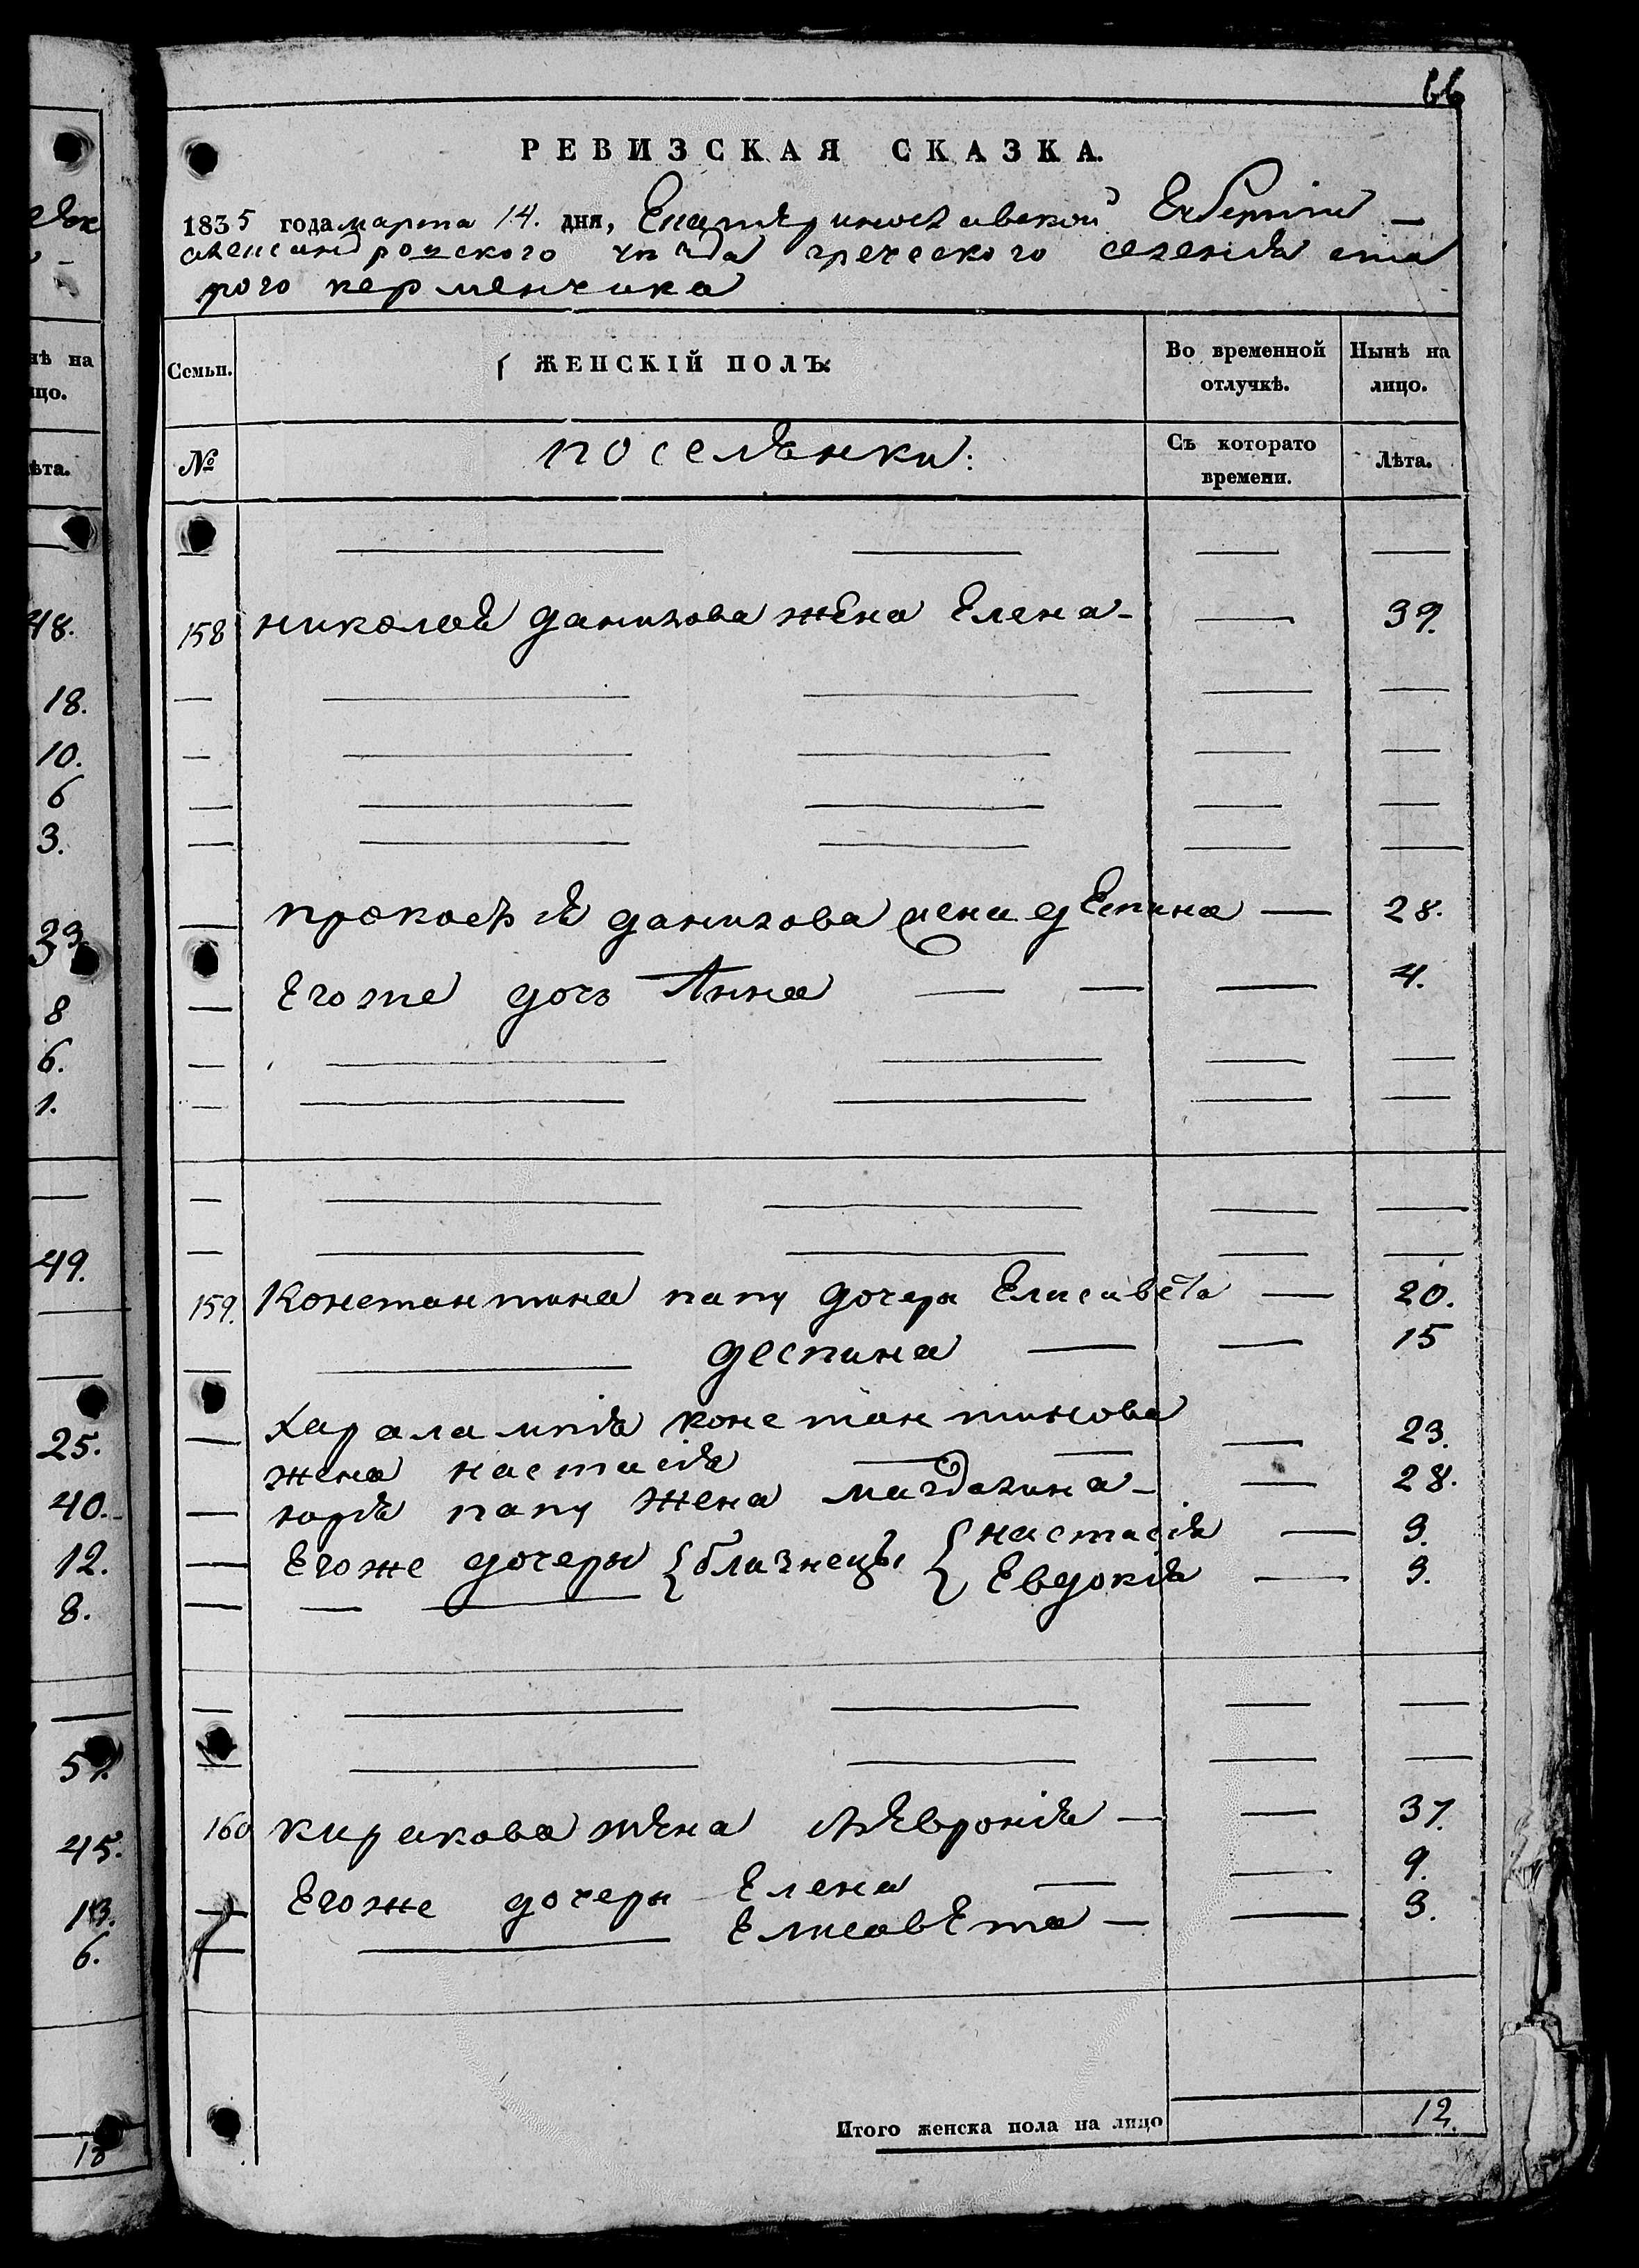 66
РЕВИЗСКАЯ СКАЗКА.
1835 года марта 14. дня, Екатѣринославской Губернiи —
александровского уѣзда греческого селенiя ста
рого керменчика
Семьи. ЖЕНСКIЙ ПОЛЪ: Во временной отлучкѣ. Нынѣ на лицо.
№ поселянки: Съ котораго времени. Лѣта.
158 николая данилова жена Елена — 39.
прокофѣя данилова жена деспина — 28.
Егоже дочь Анна — 4.
159. Константина папу дочери Елисавета — 20.
деспина — 15
Харалампiя константинова
жена настасiя — 23.
юрiя папу жена магдалина — 28.
Егоже дочери {близнецы {настасiя — 3.
Евдокiя — 3.
160 кирикова жена Февронiя — 37.
Егоже дочери Елена — 9.
Елисавета — 3.
Итого женска пола на лицо 12.
нѣ на
ицо.
ѣта.
48.
18.
10.
6
3.
33
8
6.
1.
49.
25.
40.
12.
8.
45.
13.
6.